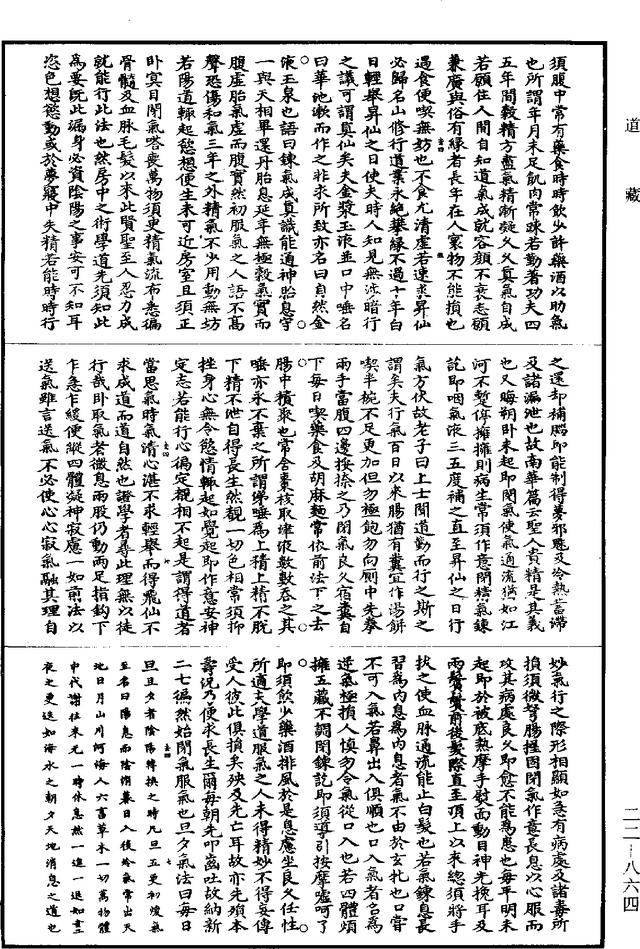 須腹中常有藥食時時飲少許藥酒以助氣
也所謂年月未足飢肉常踈若勤著功夫四
五年間穀精方盡氣精漸凝久久真氣自成
若願住人間自知道氣成就容顏不衰志願
兼廣與俗有緣者長年在人寰物不能損也
過食便喫無妨也不食尤清虛若速求昇仙
必歸名山修行道業永絕攀緣不過十年白
日輕舉昇仙之日使夫時人知見無涉暗行
之議可謂真仙矣夫金漿玉液並口中唾名
曰華池漱而作之非求所致亦名曰自然金
液玉泉也語曰鍊氣成真識能通神胎息守
一與天相畢還丹胎息延年無極穀氣實而
腹虛胎氣虛而腹實然初服氣之人語不高
聲恐傷和氣三年之外精氣不少用動無妨
若陽道輙起慾想便生未可近房室且須正
臥冥目閉氣嗒喪萬物須更精氣流布悉徧
骨髓及血脉毛髮以來此賢聖至人忍力成
就能行此法也然房中之術學道先須知此
為要旣此漏身必資陰陽之事安可不知耳
恣色想慾動或於夢寢中失精若能時時行
之還却補腦即能制得夢邪魅及冷熱畜滯
及諸漏泄也故南華篇云聖人貴精是其義
也又晦朔臥未起即閉氣使氣通流猶如江
河不暫停擁擁則病生常須作意閉精氣鍊
訖即咽氣液三五度補之直至昇仙之日行
氣方伏故老子曰上士聞道勤而行之斯之
謂矣夫行氣百日以來腸猶有糞宜作湯餅
喫半椀不足更加但勿極飽勿向厠中先拳
兩手當腹四邊挨捺之乃閉氣良久宿糞自
下每日喫藥食及胡麻麵常依前法下之去
腸中積聚也常含棗核取津液數數吞之其
唾亦永不棄之所謂涕唾為上精上精不脫
下精不泄自得長生然覩一切色相常須抑
挫身心無令慾情輙起如覺起即作意安神
定志若能行心徧定覩相不起是謂得道者
當思氣時氣清心湛不求輕舉而得飛仙不
求成道而道自然也證學者尋此理無以徒
行哉臥取氣若微息兩股仍動兩足指鈎下
乍急乍緩便縱四體凝神寂慮一如前法以
送氣雖言送氣不必使心心寂氣融其理自
妙氣行之際形相顯如急有病處及諸毒所
損須微弩腸握固閉氣作意長息以心服而
攻其病處良久即愈不能為患也每平明未
起即於被底熱摩手熨面動目神先挽耳及
兩鬢鬢前後髮際直至頂上以來總須將手
扶之使血脉通流能止白髮也若氣鍊息長
習為內息為內息者氣不由於玄牝也口嘗
不可入氣若鼻出入俱順也口入氣者名為
逆氣極損人慎勿令氣從口入也若四體煩
擁五藏不調閉鍊訖即須導引按摩噓呵了
即須飲少藥酒排風於是息慮坐良久任性
所適夫學道服氣之人未得精妙不得妄傳
受人彼此俱損矣殃及先亡耳故亦先殞本
壽況乃便求長生爾每朝先叩齒吐故納新
二七徧然始閉氣服氣也旦夕氣法曰每日
旦旦夕者陰陽轉換之時凡旦五更初煖氣
至名曰陽息而陰消暮日入後冷氣常出天
地日月山川河海人六畜草木一切萬物體
中代謝往來无一時休息然一進一退如晝
夜之更迭如海水之朝夕天地消息之道也
道藏
二二—八六四